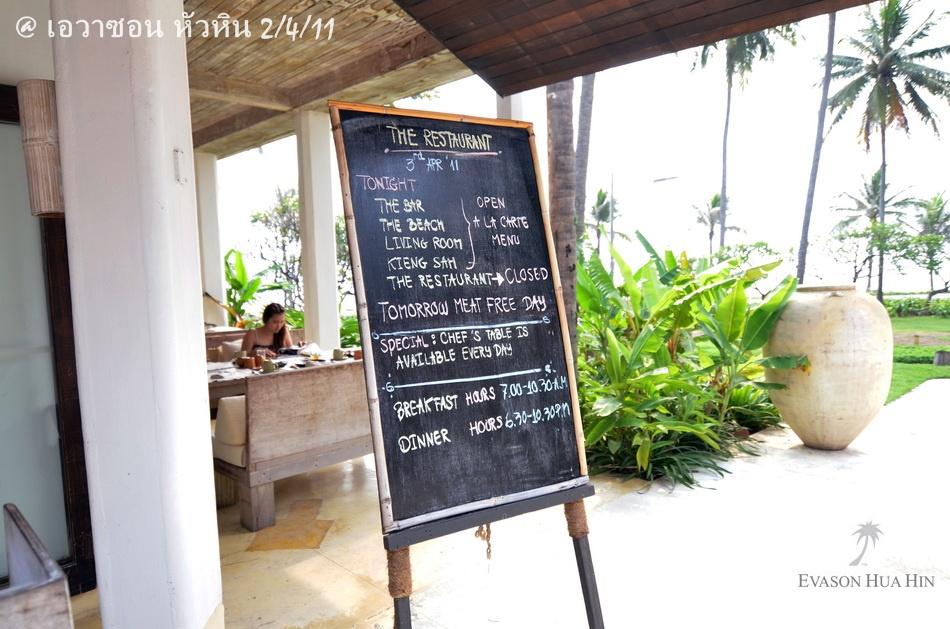 @ เอวาซอน หัวหิน 2/4/11
THE RESTAURANT
3rd APR '11
TONIGHT
THE BAR
THE BEACH
LIVING ROOM
KIENG SAH
OPEN
A LA CARTE
MENU
THE RESTAURANT → CLOSED
TOMORROW MEAT FREE DAY
SPECIAL : CHEF'S TABLE IS
AVAILABLE EVERY DAY
BREAKFAST HOURS 7.00-10.30 A.M
DINNER HOURS 6.30-10.30 P.M
EVASON HUA HIN